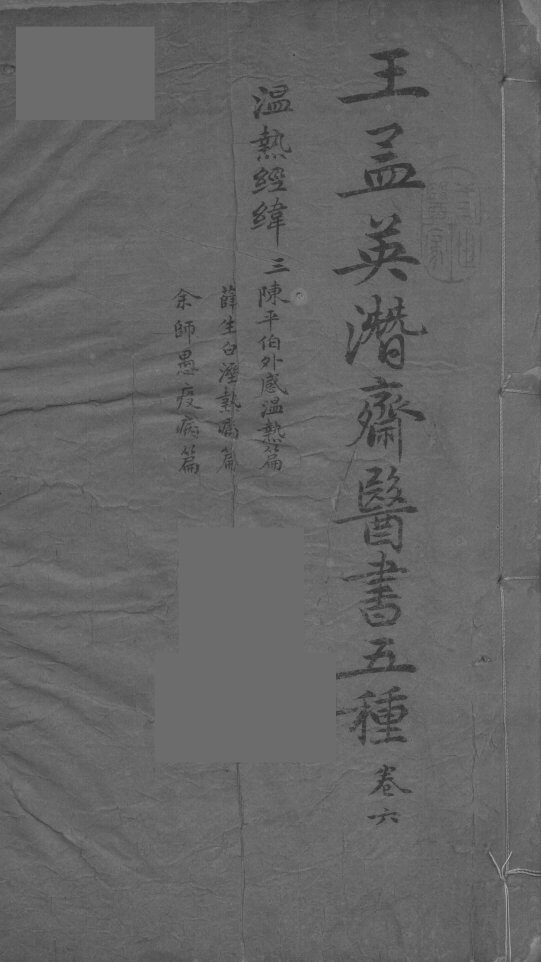 王孟英潛齋醫書五種 卷六
溫熱經緯 三 陳平伯外感溫熱篇
薛生白溼熱病篇
余師愚疫病篇